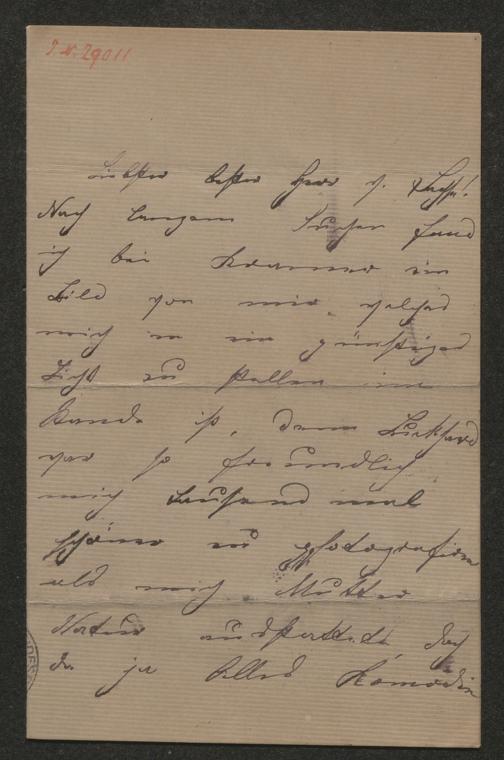 I. N. 29011
Liebster bester Herr v.
Nach langem Suchen fand
ich bei Kramer ein
Bild von mir, welches
mich in ein günstiges
Licht zu stellen im
Stande ist, denn Luckhard
war so freundlich
mich tausend mal
schöner zu photografieren
als mich Mutter
Natur ausstattete doch
da ja alles Komödie